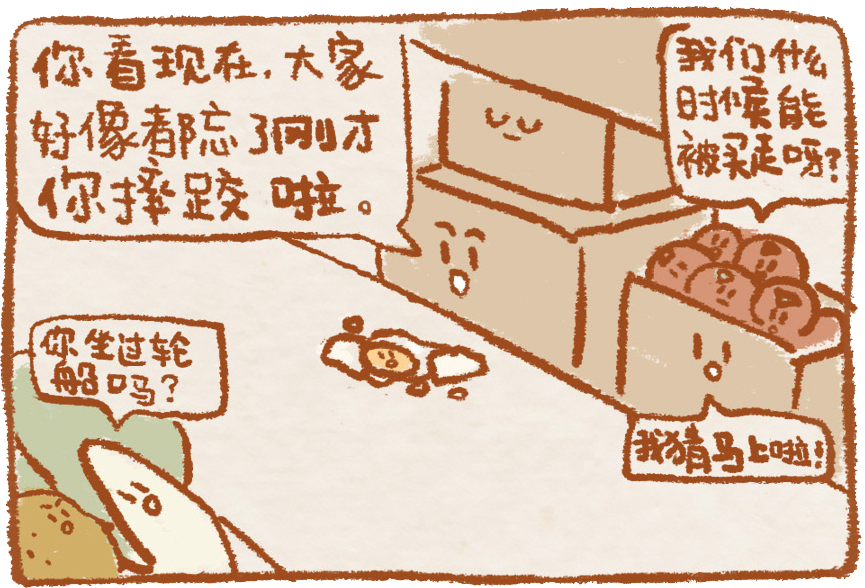 你看现在，大家
好像都忘了刚才
你摔跤啦。
我们什么
时候能
被买走呀？
你坐过轮
船吗？
我猜马上啦！